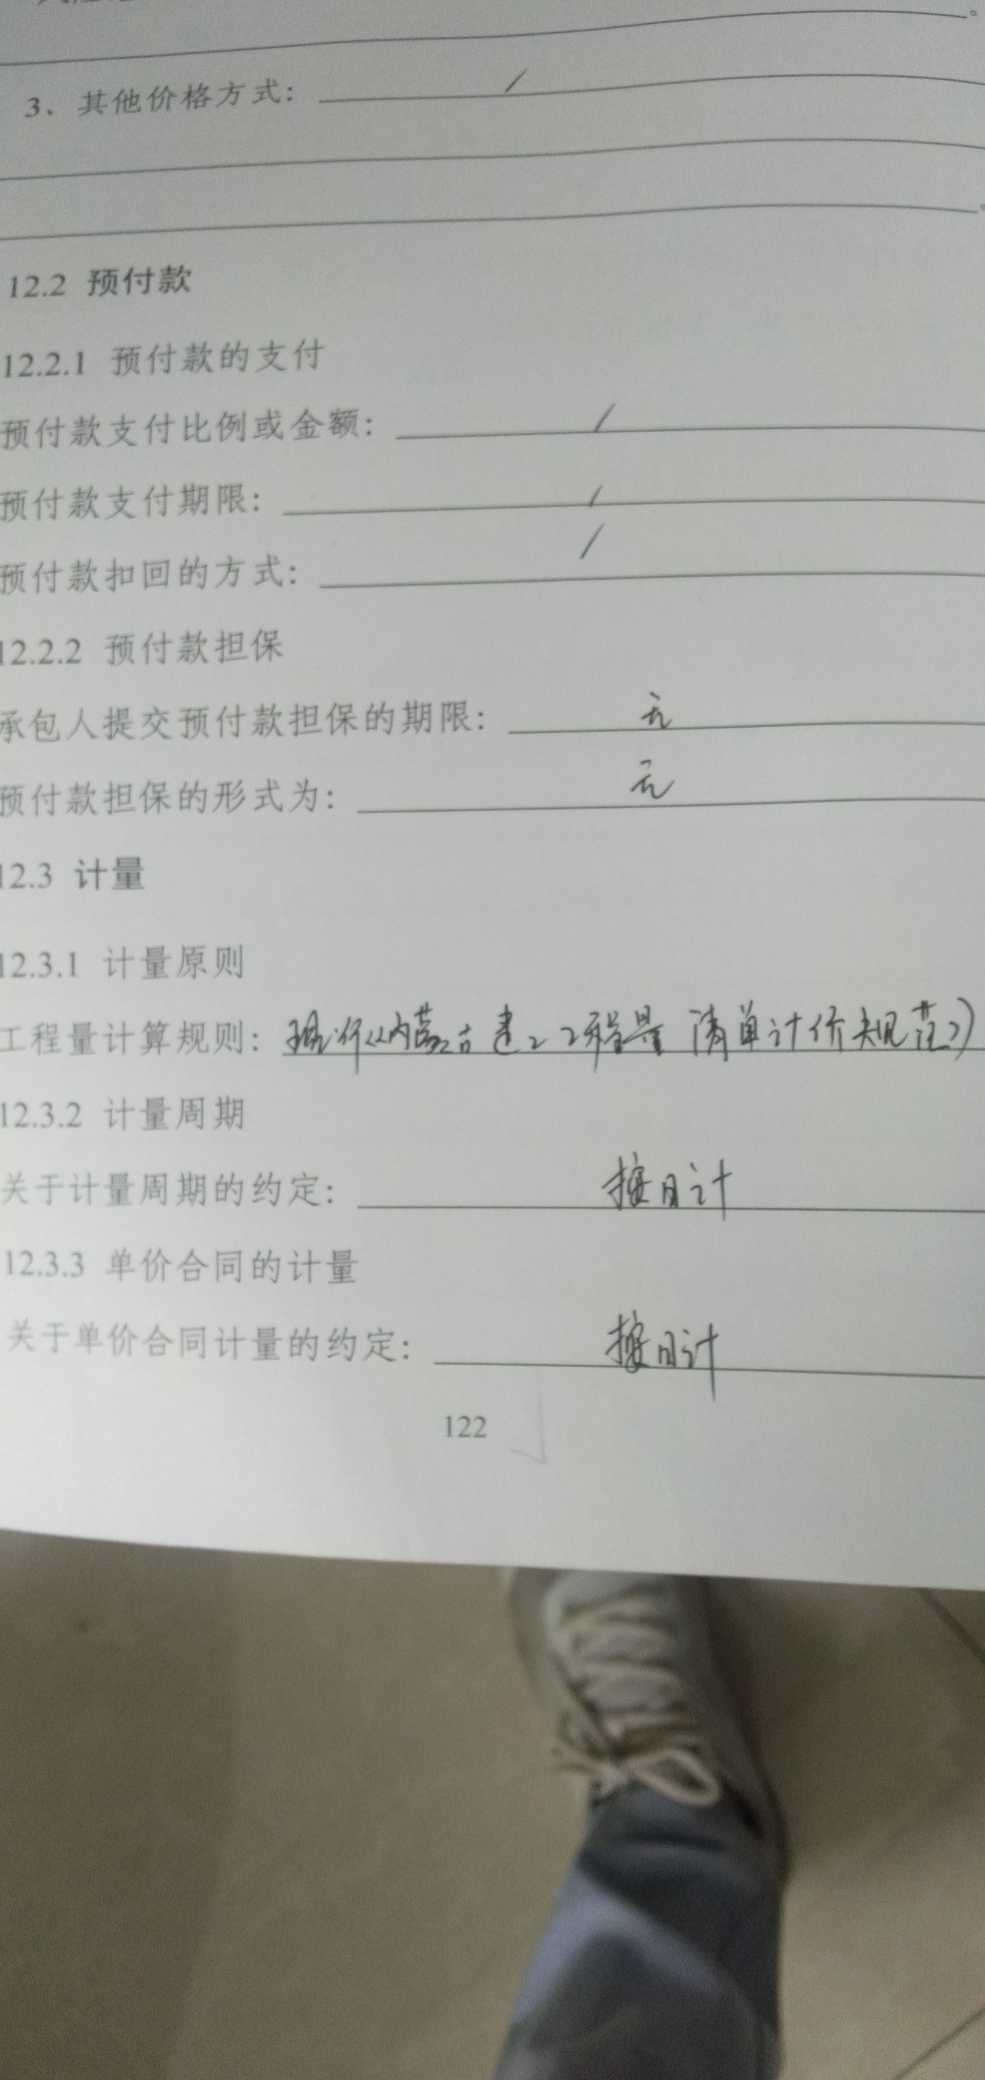 3、其他价格方式: /
。
12.2 预付款
12.2.1 预付款的支付
预付款支付比例或金额: /
预付款支付期限: /
预付款扣回的方式: /
12.2.2 预付款担保
承包人提交预付款担保的期限: 无
预付款担保的形式为: 无
12.3 计量
12.3.1 计量原则
工程量计算规则: 现行《内蒙古建工工程量清单计价规范》
12.3.2 计量周期
关于计量周期的约定: 按月计
12.3.3 单价合同的计量
关于单价合同计量的约定: 按月计
122